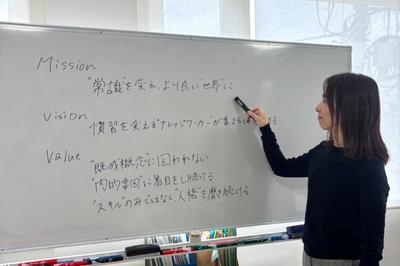 Mission
"常識"を変え、より良い"世界"に
Vision
慣習を変えるナレッジワーカーが集
Value
"既成概念"に囚われない
"内的要因"に着目をし続ける
"スキル"のみではなく"人格"を磨き続ける